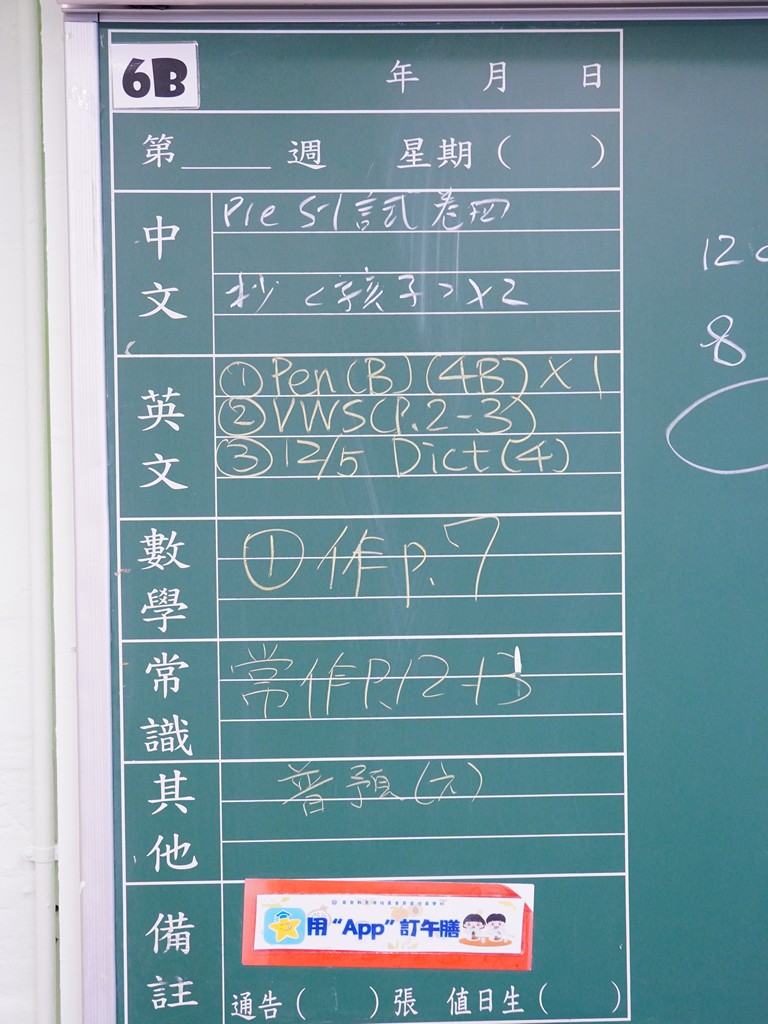 6B
年 月 日
第 週 星期( )
中文
Pre S-1 試卷四
抄〈孩子〉x2
英文
① Pen(B)(4B) x 1
② VWS(P.2-3)
③ 12/5 Dict(4)
數學
① 作 p.7
常識
常作P.12-13
其他
普預(六)
備註
用“App”訂午膳
通告( )張 值日生( )
12
8